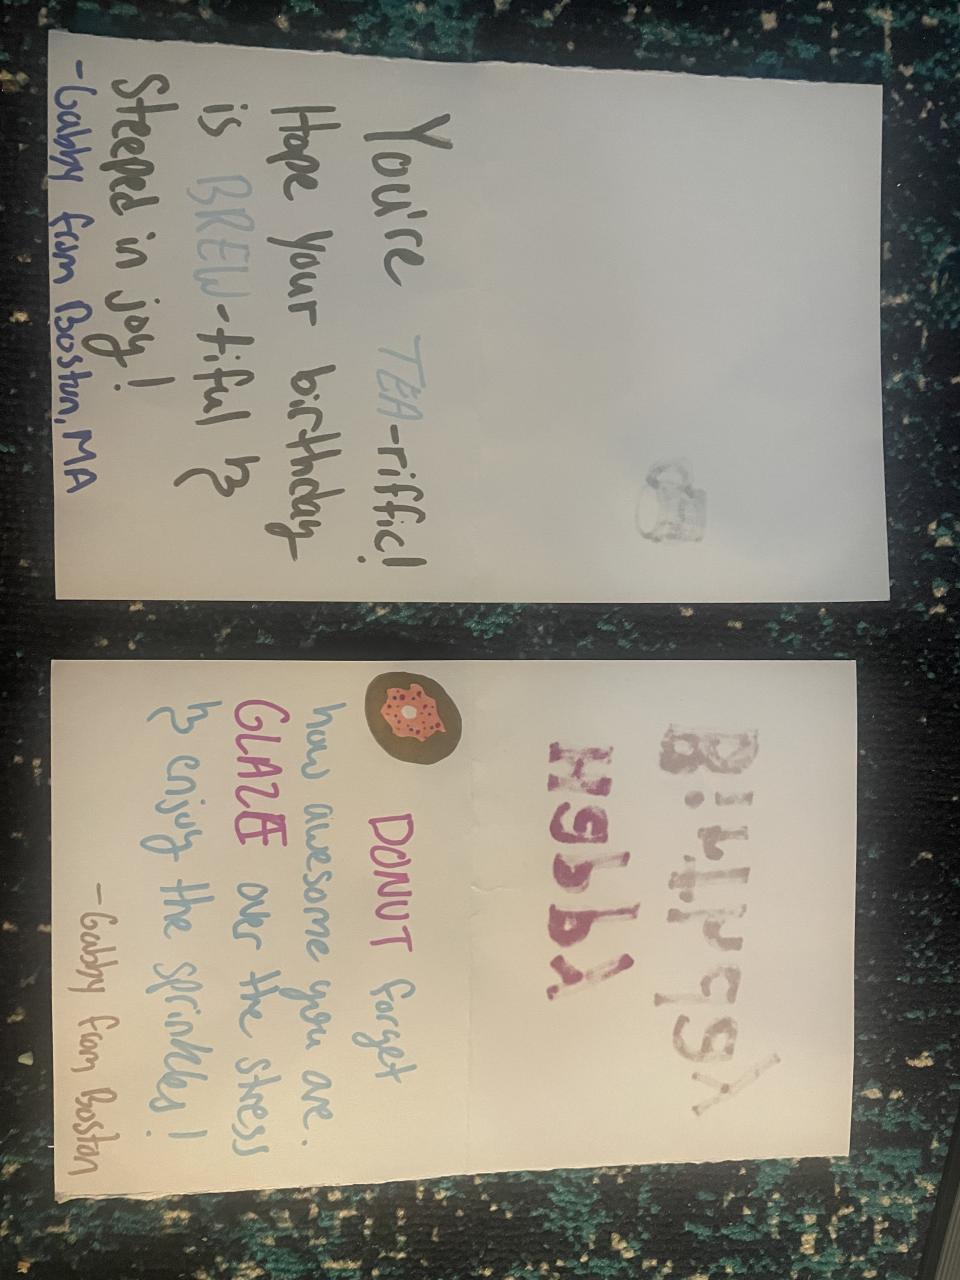 You're TEA-riffic!
Hope your birthday
is BREW-tiful &
Steeped in joy!
-Gabby from Boston, MA
Happy
Birthday
DONUT forget
how awesome you are.
GLAZE over the stress
& enjoy the sprinkles!
-Gabby from Boston